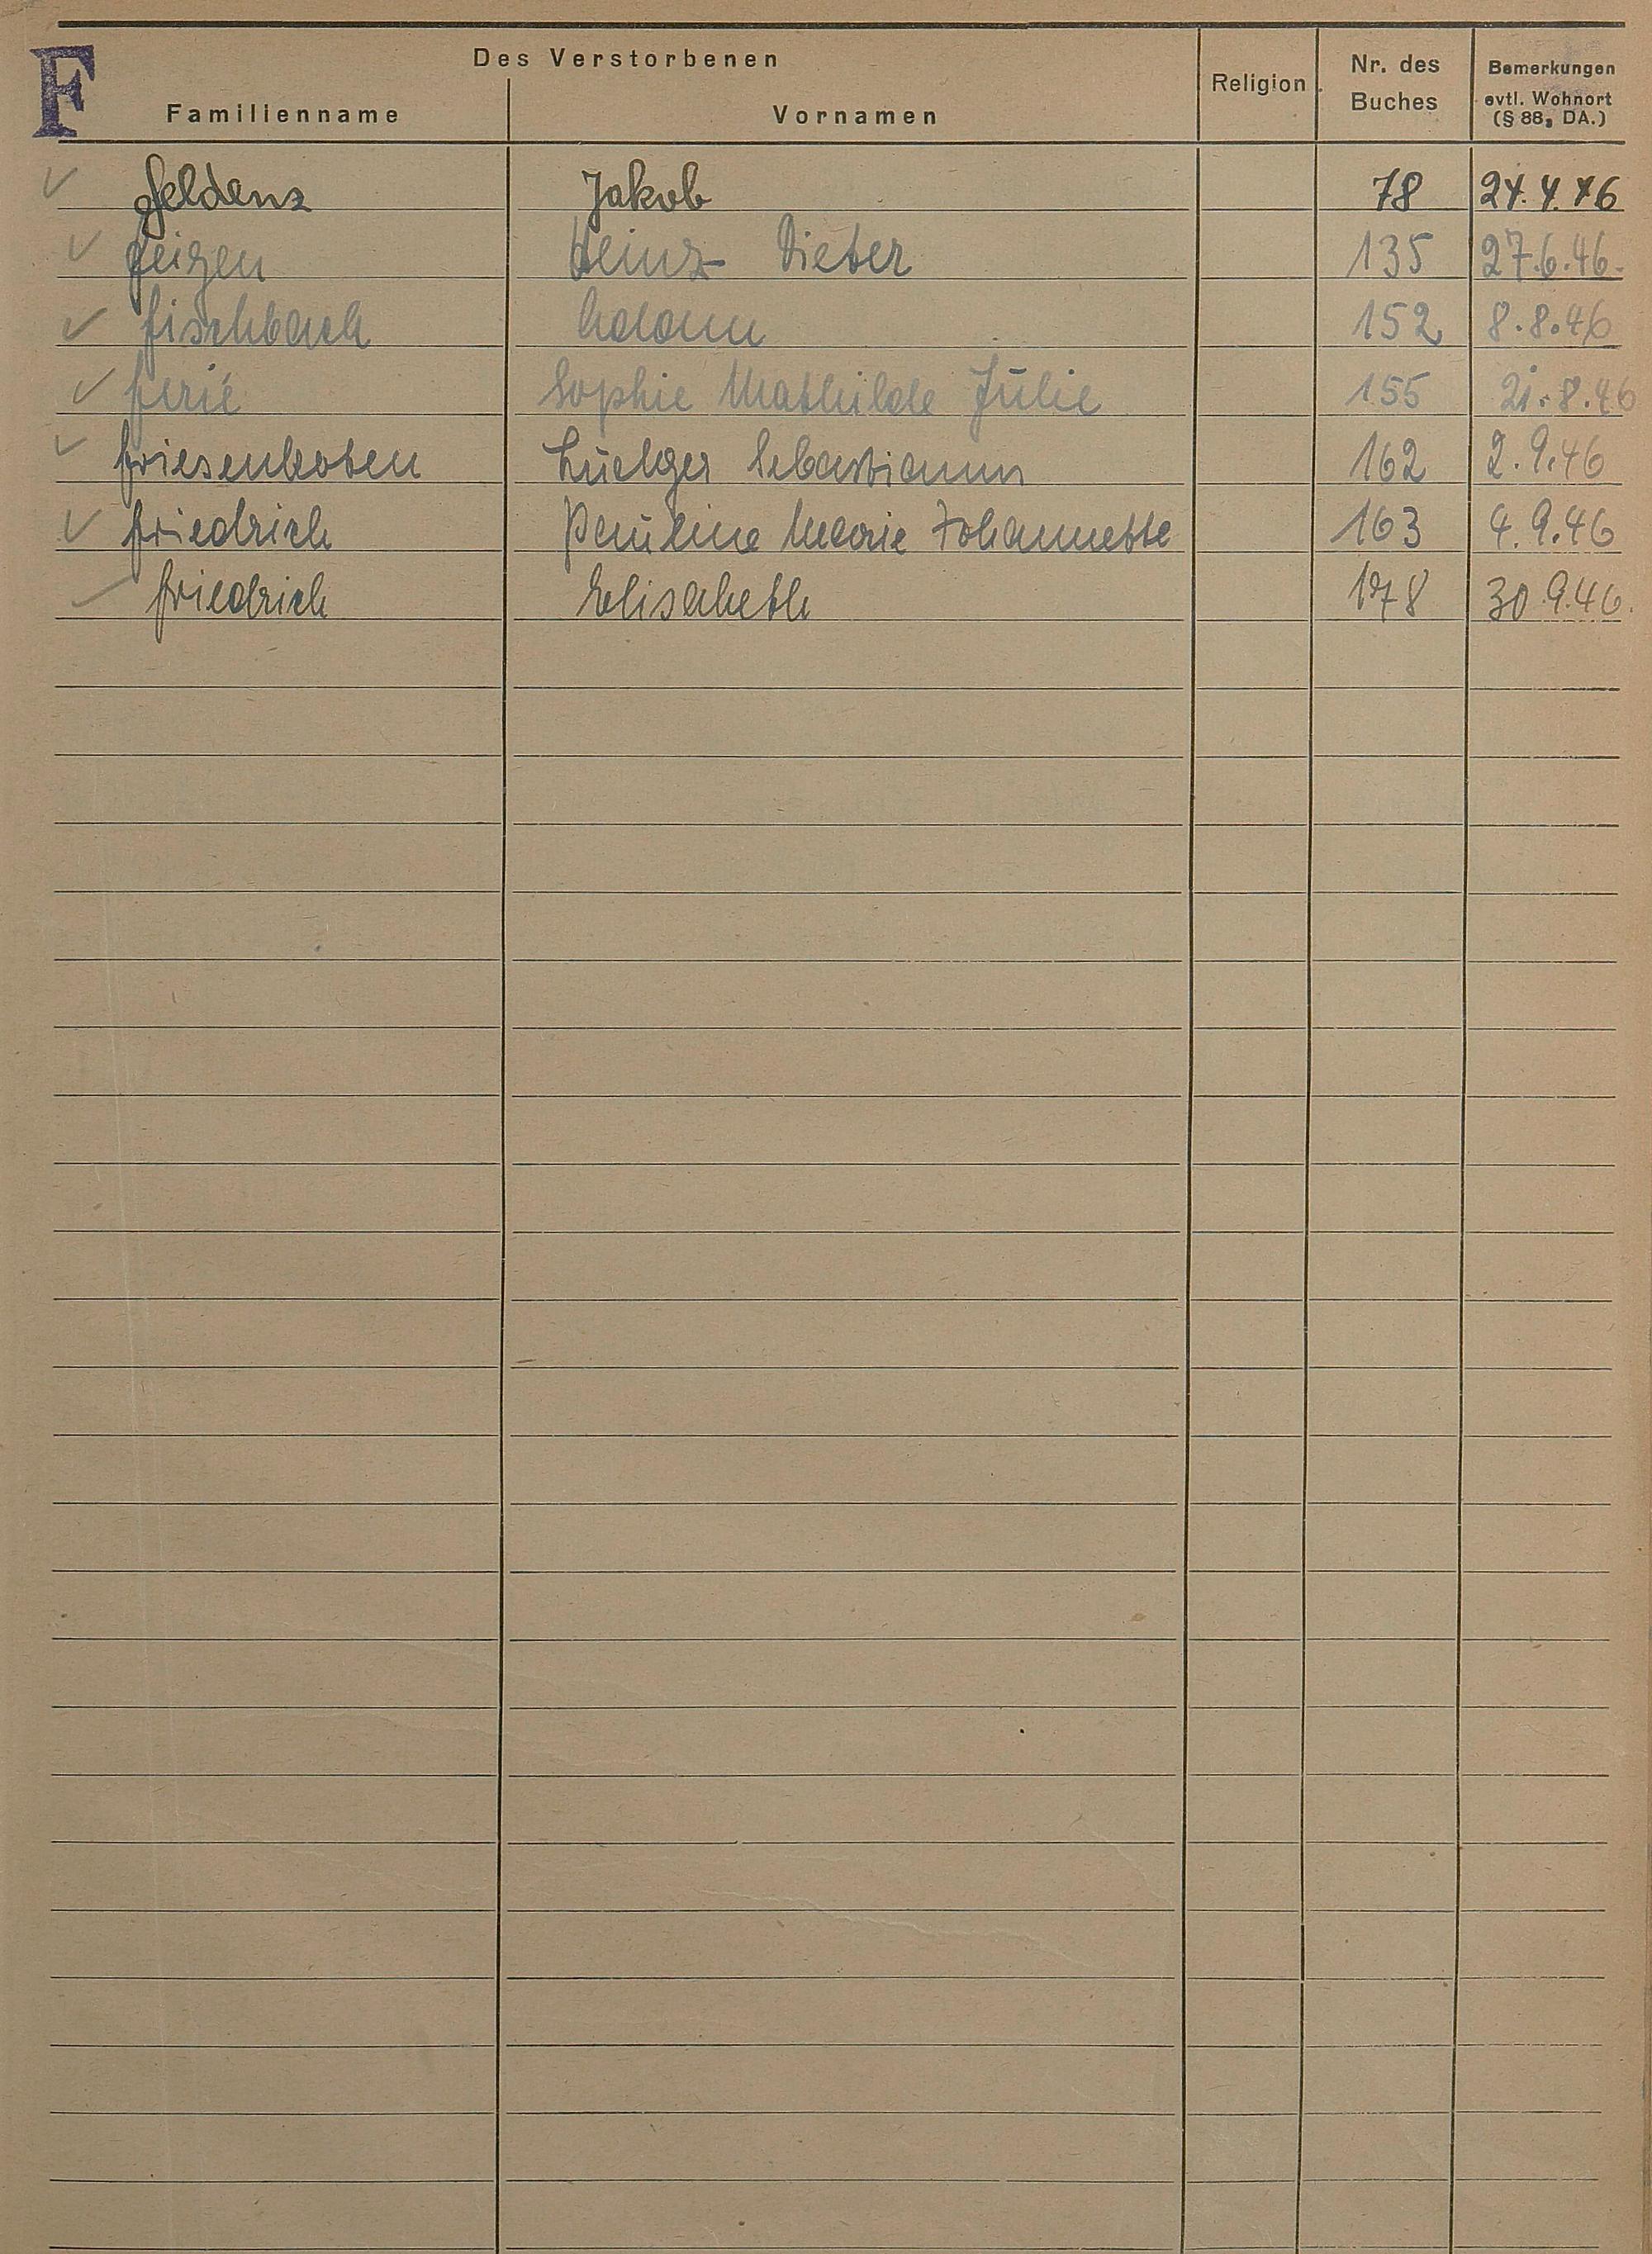 F
Des Verstorbenen
Familienname Vornamen Religion Nr. des Buches Bemerkungen evtl. Wohnort (§ 88, DA.)
Feldenz Jakob 78 24.4.46
Feigen Heinz-Dieter 135 27.6.46.
Fischbach Adam 152 8.8.46
Ferié Sophie Mathilde Julie 155 21.8.46
Friesenhoten Ludger Sebastianus 162 2.9.46
Friedrich Pauline Marie Johannette 163 4.9.46
Friedrich Elisabeth 178 30.9.46.